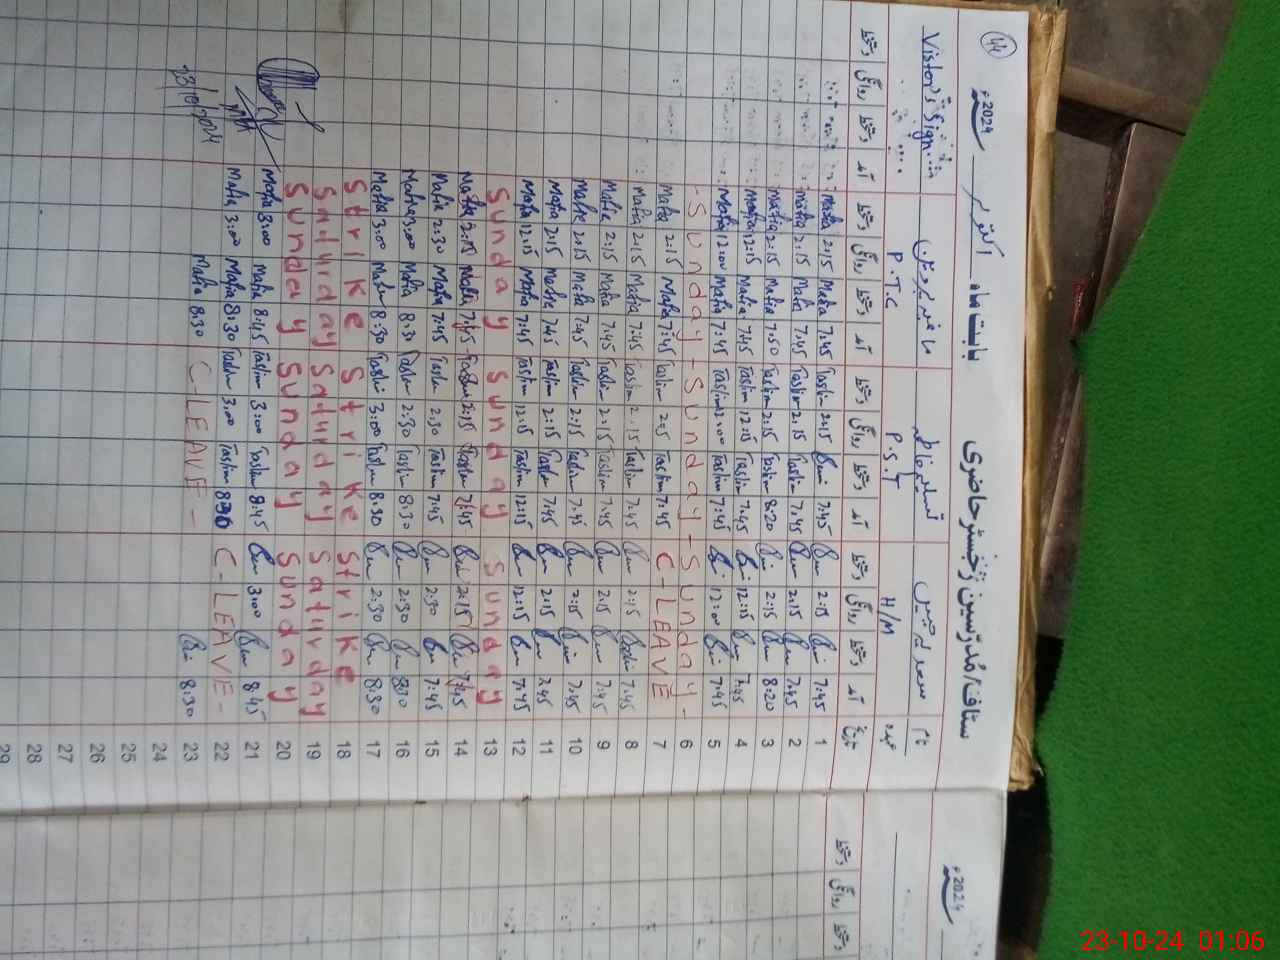 44 2024ء بابت ماہ اکتوبر سٹاف/مُدرّسین رجسٹر حاضری
Vistor's Sign
P.T.C P.S.T H/M نام
عہدہ
دستخط روانگی دستخط آمد دستخط روانگی دستخط آمد دستخط روانگی دستخط آمد دستخط روانگی دستخط آمد تاریخ
Mafia 2:15 Mafia 7:45 Taslim 2:15 7:45 2:15 7:45 1
Mafia 2:15 Mafia 7:45 Taslim 2:15 Taslim 7:45 2:15 7:45 2
Mafia 2:15 Mafia 7:50 Taslim 2:15 Taslim 8:20 2:15 8:20 3
Mafia 12:15 Mafia 7:45 Taslim 12:15 Taslim 7:45 12:15 7:45 4
Mafia 12:00 Mafia 7:45 Taslim 12:00 Taslim 7:45 12:00 7:45 5
- Sunday - Sunday - Sunday - 6
Mafia 2:15 Mafia 7:45 Taslim 2:15 Taslim 7:45 C-LEAVE 7
Mafia 2:15 Mafia 7:45 Taslim 2:15 Taslim 7:45 2:15 7:45 8
Mafia 2:15 Mafia 7:45 Taslim 2:15 Taslim 7:45 2:15 7:45 9
Mafia 2:15 Mafia 7:45 Taslim 2:15 Taslim 7:45 2:15 7:45 10
Mafia 2:15 Mafia 7:45 Taslim 2:15 Taslim 7:45 2:15 7:45 11
Mafia 12:15 Mafia 7:45 Taslim 12:15 Taslim 12:15 12:15 7:45 12
Sunday Sunday Sunday 13
Mafia 2:15 Mafia 7:45 Taslim 2:15 Taslim 7:45 2:15 7:45 14
Mafia 2:30 Mafia 7:45 Taslim 2:30 Taslim 7:45 2:30 7:45 15
Mafia 3:00 Mafia 8:30 Taslim 2:30 Taslim 8:30 2:30 8:30 16
Mafia 3:00 Mafia 8:30 Taslim 3:00 Taslim 8:30 2:30 8:30 17
Strike Strike Strike 18
Saturday Saturday Saturday 19
Sunday Sunday Sunday 20
Mafia 3:00 Mafia 8:45 Taslim 3:00 Taslim 8:45 3:00 8:45 21
Mafia 3:00 Mafia 8:30 Taslim 3:00 Taslim 8:30 C-LEAVE - 22
23/10/2024 Mafia 8:30 C-LEAVE - 8:30 23
24
25
26
27
28
29
2024ء
دستخط روانگی دستخط
23-10-24 01:06